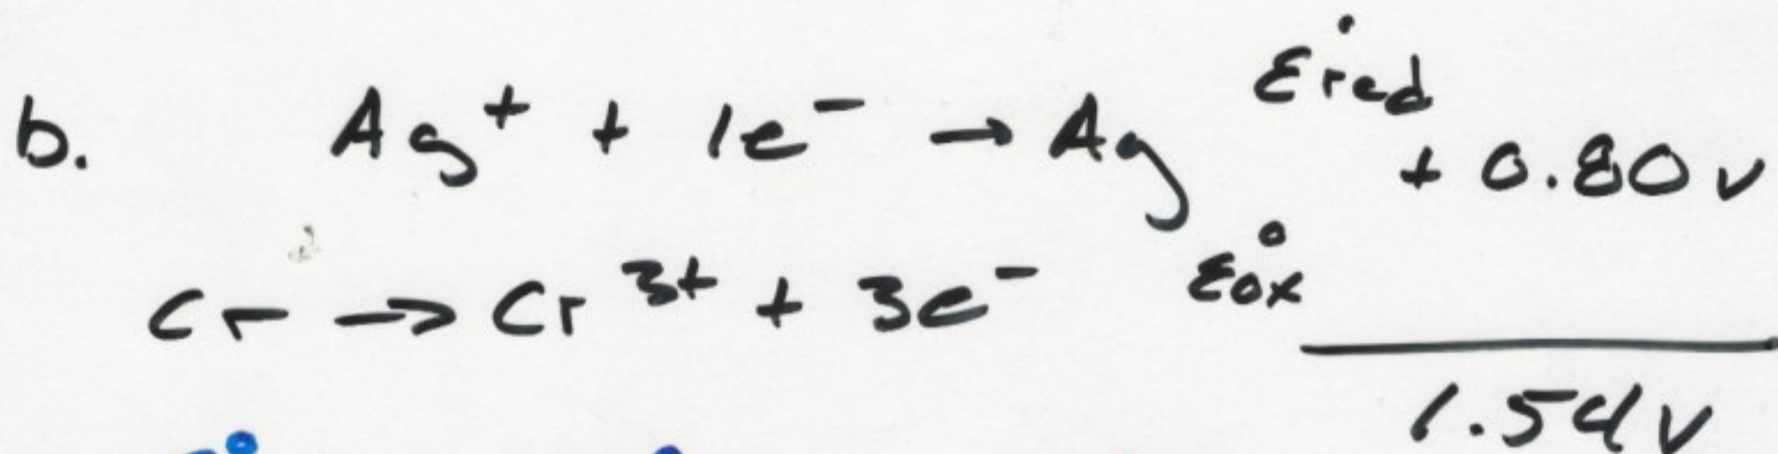 b. Ag⁺ + 1e⁻ → Ag E°red + 0.80 v
Cr → Cr³⁺ + 3e⁻ E°ox
1.54 v